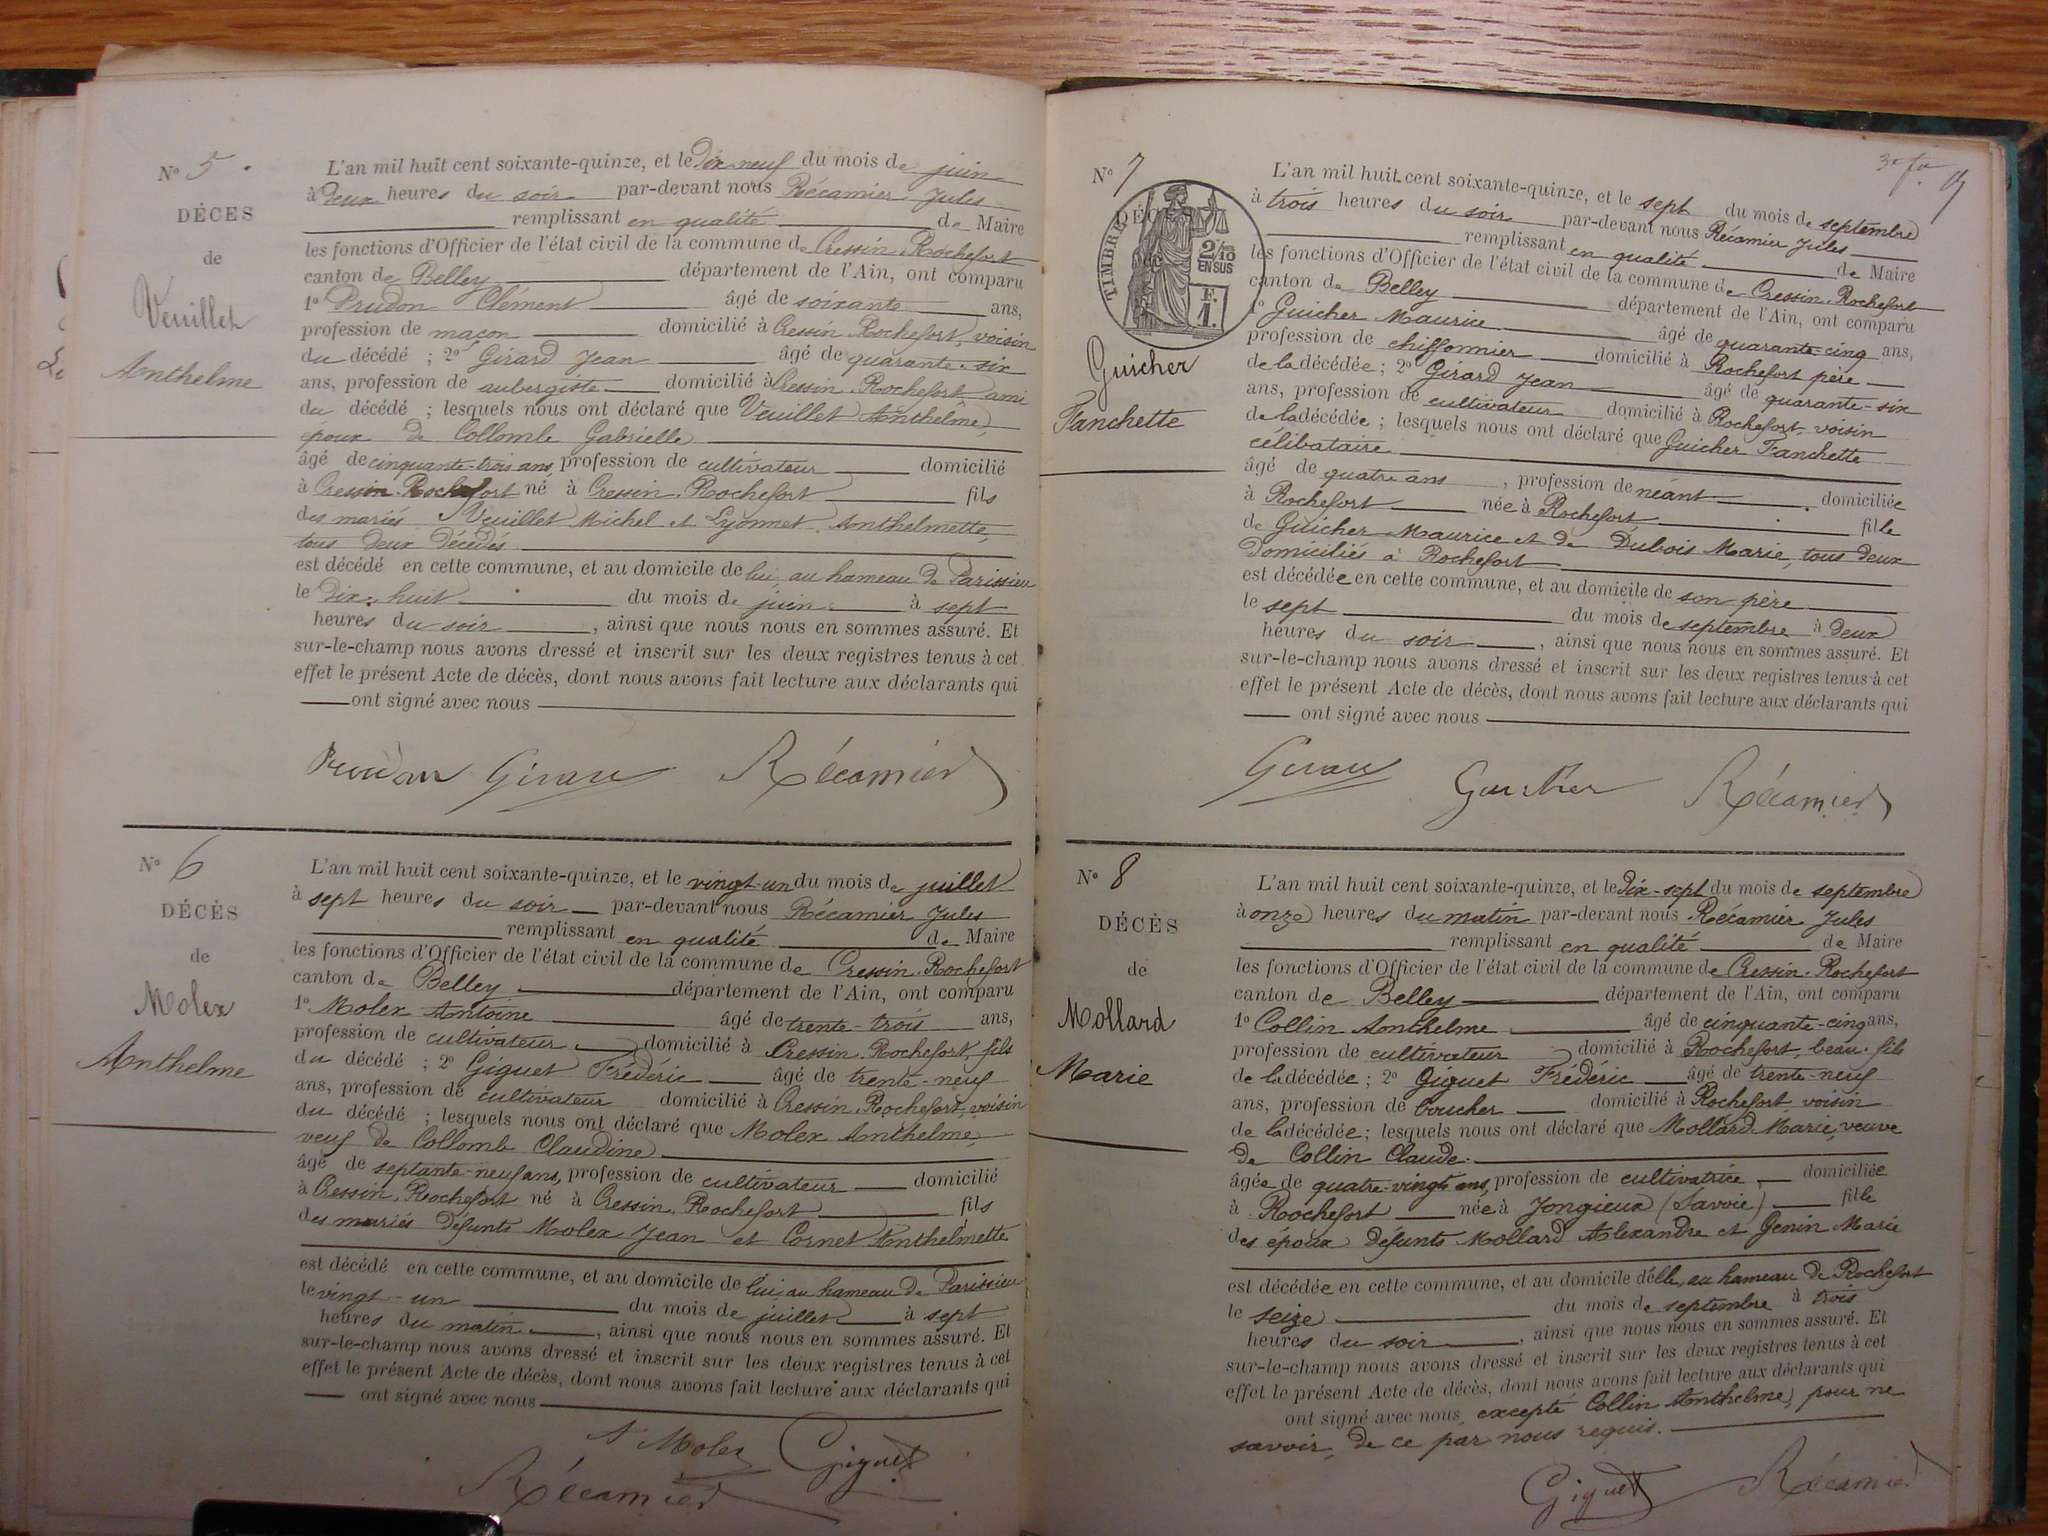 N° 5.
DÉCES
de
Veuillet
Anthelme
L'an mil huit cent soixante-quinze, et le Dix neuf du mois de juin
à deux heures du soir par-devant nous Récamier Jules
remplissant en qualité de Maire
les fonctions d'Officier de l'état civil de la commune de Cressin-Rochefort
canton de Belley département de l'Ain, ont comparu
1° Prudon Clément âgé de soixante ans,
profession de maçon domicilié à Cressin-Rochefort, voisin
du décédé ; 2° Girard Jean âgé de quarante-six
ans, profession de aubergiste domicilié à Cressin-Rochefort ami
du décédé ; lesquels nous ont déclaré que Veuillet Anthelme,
époux de Collomb Gabrielle
âgé de cinquante-trois ans, profession de cultivateur domicilié
à Cressin-Rochefort né à Cressin-Rochefort fils
des mariés Veuillet Michel et Lyonnet Anthelmette,
tous deux décédés
est décédé en cette commune, et au domicile de lui, au hameau de Parissieu
le Dix-huit du mois de juin à sept
heures du soir, ainsi que nous nous en sommes assuré. Et
sur-le-champ nous avons dressé et inscrit sur les deux registres tenus à cet
effet le présent Acte de décès, dont nous avons fait lecture aux déclarants qui
ont signé avec nous
Prudon Girard Récamier
N° 6
DÉCÈS
de
Molex
Anthelme
L'an mil huit cent soixante-quinze, et le vingt-un du mois de juillet
à sept heures du soir par-devant nous Récamier Jules
remplissant en qualité de Maire
les fonctions d'Officier de l'état civil de la commune de Cressin-Rochefort
canton de Belley département de l'Ain, ont comparu
1° Molex Antoine âgé de trente-trois ans,
profession de cultivateur domicilié à Cressin-Rochefort, fils
du décédé ; 2° Giguet Frédéric âgé de trente-neuf
ans, profession de cultivateur domicilié à Cressin-Rochefort, voisin
du décédé ; lesquels nous ont déclaré que Molex Anthelme,
veuf de Collomb Claudine
âgé de septante-neuf ans, profession de cultivateur domicilié
à Cressin-Rochefort né à Cressin-Rochefort fils
des mariés défunts Molex Jean et Cornet Anthelmette
est décédé en cette commune, et au domicile de lui, au hameau de Parissieu
le vingt-un du mois de juillet à sept
heures du matin, ainsi que nous nous en sommes assuré. Et
sur-le-champ nous avons dressé et inscrit sur les deux registres tenus à cet
effet le présent Acte de décès, dont nous avons fait lecture aux déclarants qui
ont signé avec nous
A Molex Giguet
Récamier
N° 7
TIMBRE
2/10
EN SUS
F.
1.
Guicher
Fanchette
L'an mil huit cent soixante-quinze, et le sept du mois de septembre
à trois heures du soir par-devant nous Récamier Jules
remplissant en qualité de Maire
les fonctions d'Officier de l'état civil de la commune de Cressin-Rochefort
canton de Belley département de l'Ain, ont comparu
1° Guicher Maurice âgé de quarante-cinq ans,
profession de chiffonnier domicilié à Rochefort père
de la décédée ; 2° Girard Jean âgé de quarante-six
ans, profession de cultivateur domicilié à Rochefort, voisin
de la décédée ; lesquels nous ont déclaré que Guicher Fanchette
célibataire
âgé de quatre ans, profession de néant domiciliée
à Rochefort née à Rochefort fille
de Guicher Maurice et de Dubois Marie, tous deux
domiciliés à Rochefort
est décédée en cette commune, et au domicile de son père
le sept du mois de septembre à deux
heures du soir, ainsi que nous nous en sommes assuré. Et
sur-le-champ nous avons dressé et inscrit sur les deux registres tenus à cet
effet le présent Acte de décès, dont nous avons fait lecture aux déclarants qui
ont signé avec nous
Girard Guicher Récamier
N° 8
DÉCÈS
de
Mollard
Marie
L'an mil huit cent soixante-quinze, et le dix-sept du mois de septembre
à onze heures du matin par-devant nous Récamier Jules
remplissant en qualité de Maire
les fonctions d'Officier de l'état civil de la commune de Cressin-Rochefort
canton de Belley département de l'Ain, ont comparu
1° Collin Anthelme âgé de cinquante-cinq ans,
profession de cultivateur domicilié à Rochefort, beau-fils
de la décédée ; 2° Giguet Frédéric âgé de trente-neuf
ans, profession de boucher domicilié à Rochefort voisin
de la décédée ; lesquels nous ont déclaré que Mollard Marie, veuve
de Collin Claude.
âgée de quatre-vingts ans, profession de cultivatrice, domiciliée
à Rochefort née à Jongieux (Savoie) fille
des époux défunts Mollard Alexandre et Genin Marie
est décédée en cette commune, et au domicile d'elle, au hameau de Rochefort
le seize du mois de septembre à trois
heures du soir, ainsi que nous nous en sommes assuré. Et
sur-le-champ nous avons dressé et inscrit sur les deux registres tenus à cet
effet le présent Acte de décès, dont nous avons fait lecture aux déclarants qui
ont signé avec nous, excepté Collin Anthelme, pour ne
savoir, de ce par nous requis.
Giguet Récamier